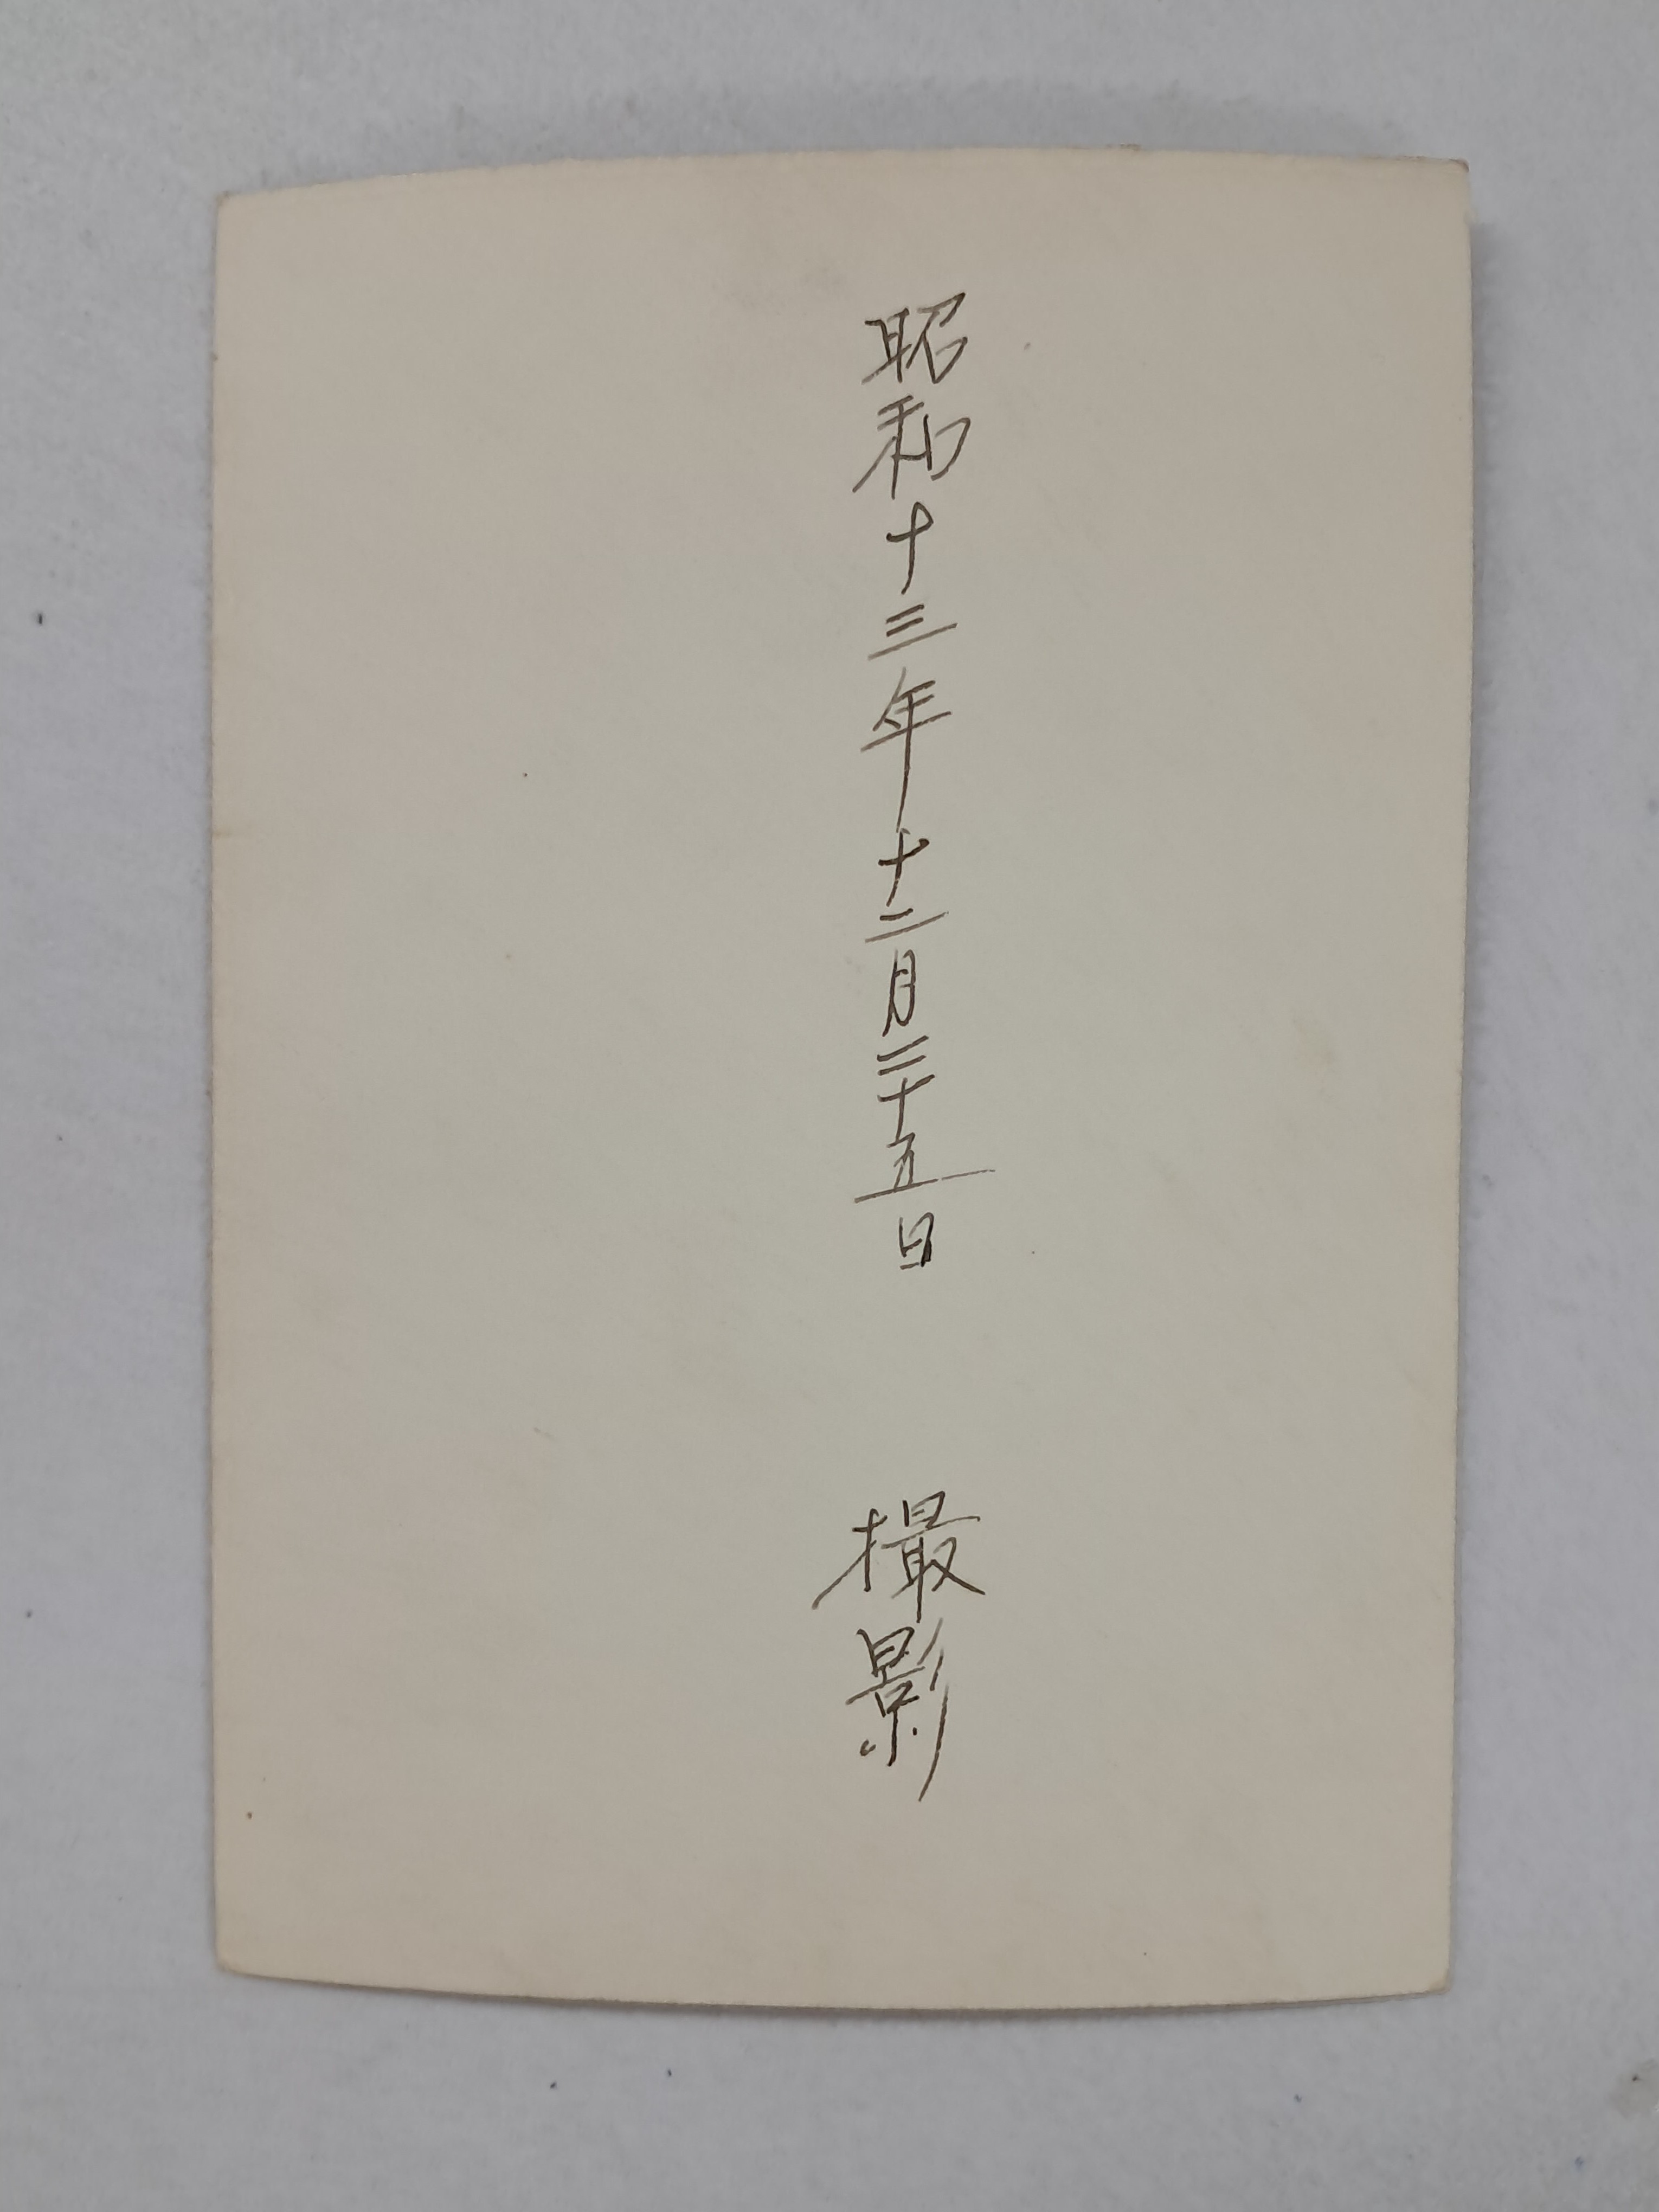 昭和十三年十二月二十五日　撮影